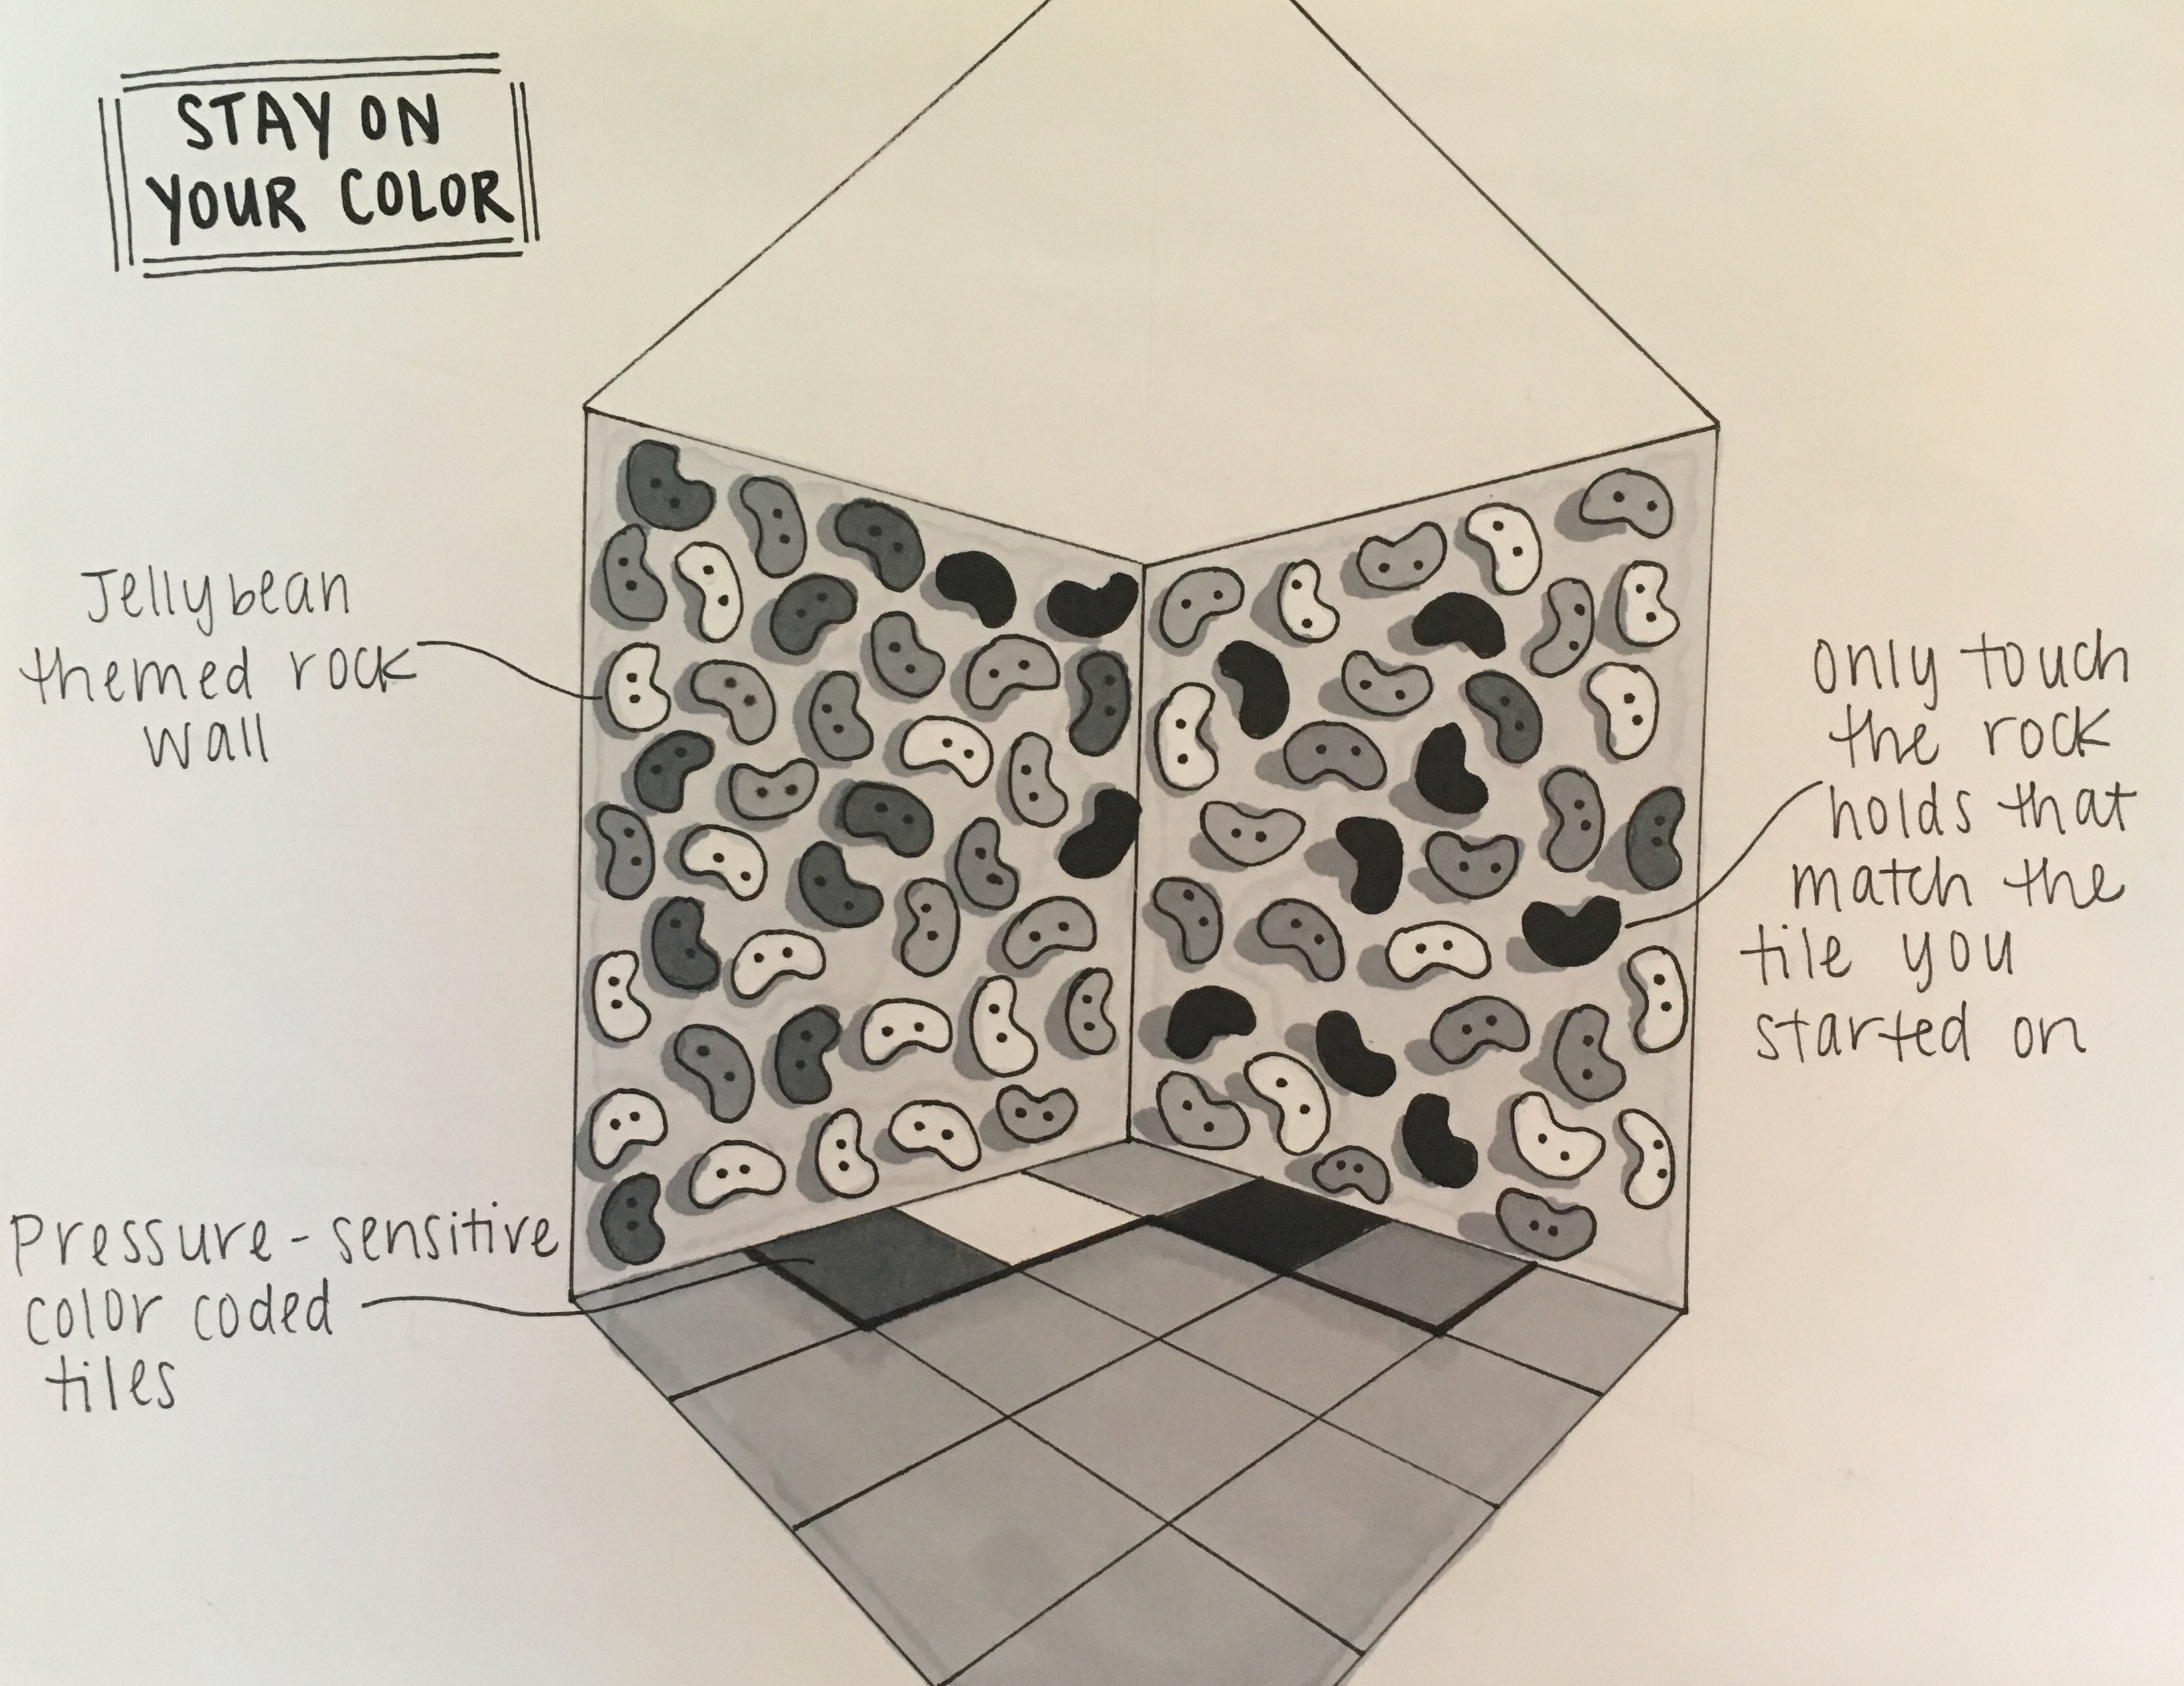 STAY ON
YOUR COLOR
Jellybean
themed rock
wall
only touch
the rock
holds that
match the
tile you
started on
Pressure-sensitive
color coded
tiles